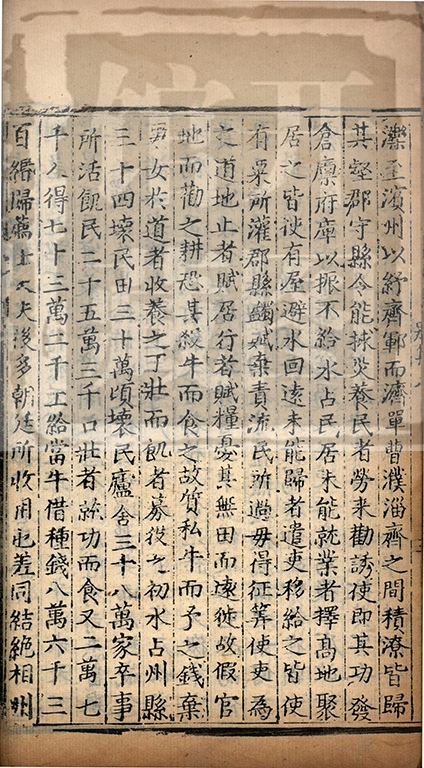 濼至濱州以紓齊鄆而濟單曹濮淄齊之間積潦皆歸
其壑郡守縣令能捄災養民者勞來勸誘使即其功發
倉廩府庫以振不給水占民居未能就業者擇髙地聚
居之皆使有屋避水回逺未能歸者遣吏移給之皆使
有粟所灌郡縣蠲賦棄責流民所過毋得征筭使吏為
之道地止者賦居行者賦糧憂其無田而逺徙故假官
地而勸之耕恐其殺牛而食之故質私牛而予之錢棄
男女於道者收養之丁壯而飢者募役之初水占州縣
三十四壊民田三十萬頃壊民廬舍三十八萬家卒事
所活飢民二十五萬三千口壯者就功而食又二萬七
千人得七十三萬二千工給當牛借種錢八萬六千三
百緡歸薦士大夫後多朝廷所收用也差同結絶相州